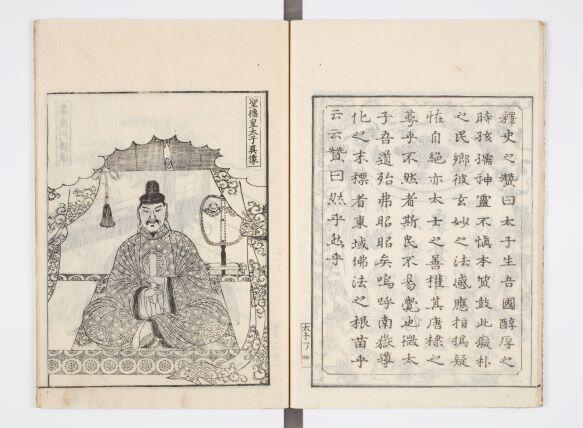 釋史之贊曰太子生吾國醇厚之
時孩孺神靈不慎本鼓此癡朴
之民鄉彼玄妙之法感應相疑
恠自絶亦太士之善權其唐棣之
乎不然者斯民不易覺也微太
子吾道殆弗昭昭矣嗚呼南嶽導
化之末標者東域佛法之根苗乎
云云贊曰然乎然乎
太子 四
聖德皇太子真像